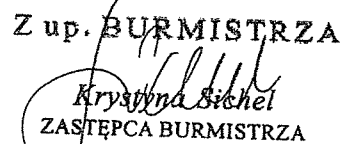 Z up. BURMISTRZA
Krystyna Sichel
ZASTĘPCA BURMISTRZA